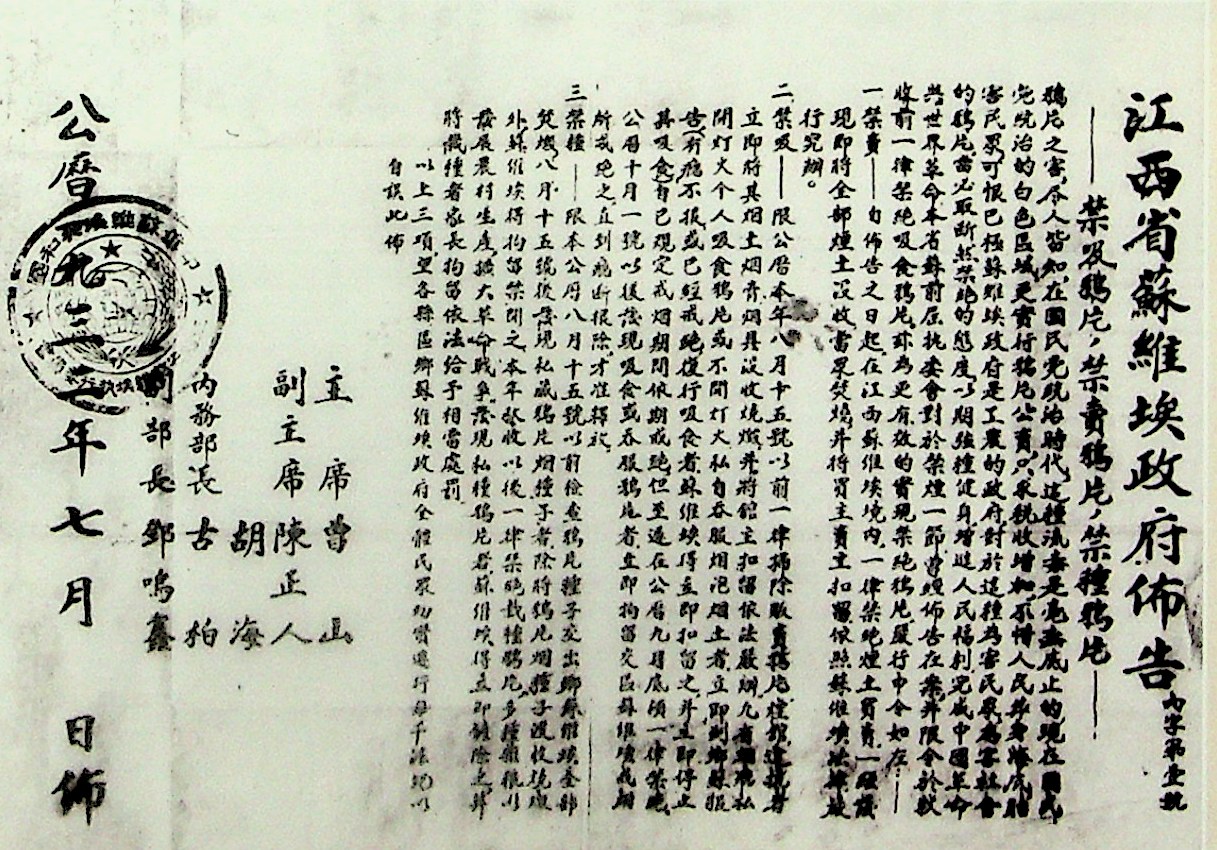 江西省蘇維埃政府佈告 內字第壹號
——禁吸鴉片，禁賣鴉片，禁種鴉片——
鴉片之害，尽人皆知，在國民党統治時代，這種流毒是毫無底止的，現在國民
党統治的白色區域，更實行鴉片公賣，只求稅收增加，不惜人民
害民眾，可恨已極，蘇維埃政府是工農的政府，對於這種為害民眾，為害社會
的鴉片，當必取断然禁絕的態度，以期強種健身，增進人民福利，完成中國革命
與世界革命，本省蘇前屆执委会對於禁煙一節，曾經佈告在案，并限令於秋
收前一律禁絕吸食鴉片，茲為更有效的實現禁絕鴉片，嚴行申令如左——
一禁賣——自佈告之日起，在江西蘇維埃境內，一律禁絕煙土買賣，一經查
現，即將全部煙土没收，當眾焚燒，并將買主賣主扣留，依照蘇維埃法律嚴
行究辦。
二禁吸——限公曆本年八月十五號以前，一律掃除販賣鴉片煙館，違抗者
立即將其烟土烟膏烟具没收燒燬，并將館主扣留依法嚴辦，凡有癮私
開灯火个人吸食鴉片，或不開灯火私自吞服烟泡烟土者，立即到鄉蘇報
告，有癮不报，或已經戒絕，復行吸食者，蘇維埃得立即扣留之，并立即停止
其吸食，自己規定戒烟期間依期戒絕，但至遲在公曆九月底須一律禁絕，
公曆十月一號以後，發現吸食或吞服鴉片者，立即拘留，交區蘇維埃戒烟
所戒絕之，直到癮断根除，才准釋放。
三禁種——限本公曆八月十五號以前，檢查鴉片種子，交出鄉蘇維埃全部
焚燬，八月十五號後，發現私藏鴉片烟種子者，除將鴉片烟種子没收燒燬
外，蘇維埃得拘留禁閉之，本年秋收以後，一律禁絕栽種鴉片，多種雜粮，以
發展農村生產，擴大革命戰爭，發現私種鴉片者，蘇維埃得立即鏟除之，并
將栽種者家長拘留，依法給予相當處罰。
以上三項，望各縣區鄉蘇維埃政府全體民眾切實遵行，毋干法紀，以
自誤，此佈
主席 曾山
副主席 陳正人
胡海
內務部長 古柏
副部長 鄧鳴鑫
公曆一九三二年七月 日佈